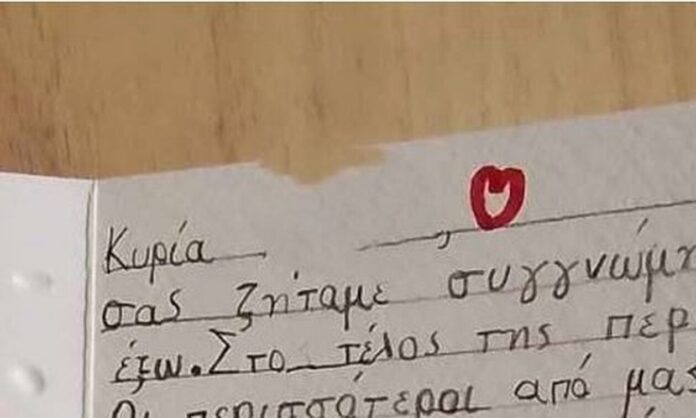 Κυρία ,
σας ζητάμε συγγνώμη
έξω. Στο τέλος της περ
Οι περισσότεροι από μας